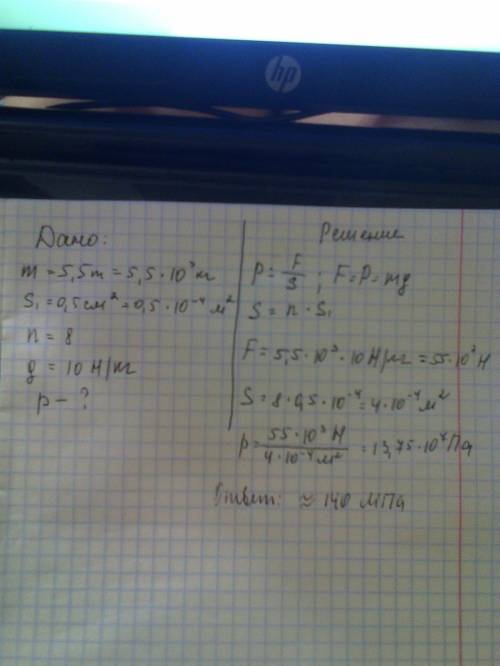 hp
Дано:
m = 5,5т = 5,5·10³кг
S₁ = 0,5см² = 0,5·10⁻⁴м²
n = 8
g = 10 Н/кг
p – ?
Решение
P = F/S ; F = P = mg
S = n · S₁
F = 5,5·10³·10Н/кг = 55·10³Н
S = 8·0,5·10⁻⁴ = 4·10⁻⁴м²
p = 55·10³Н / 4·10⁻⁴м² = 13,75·10⁷Па
Ответ: ≈ 140 МПа